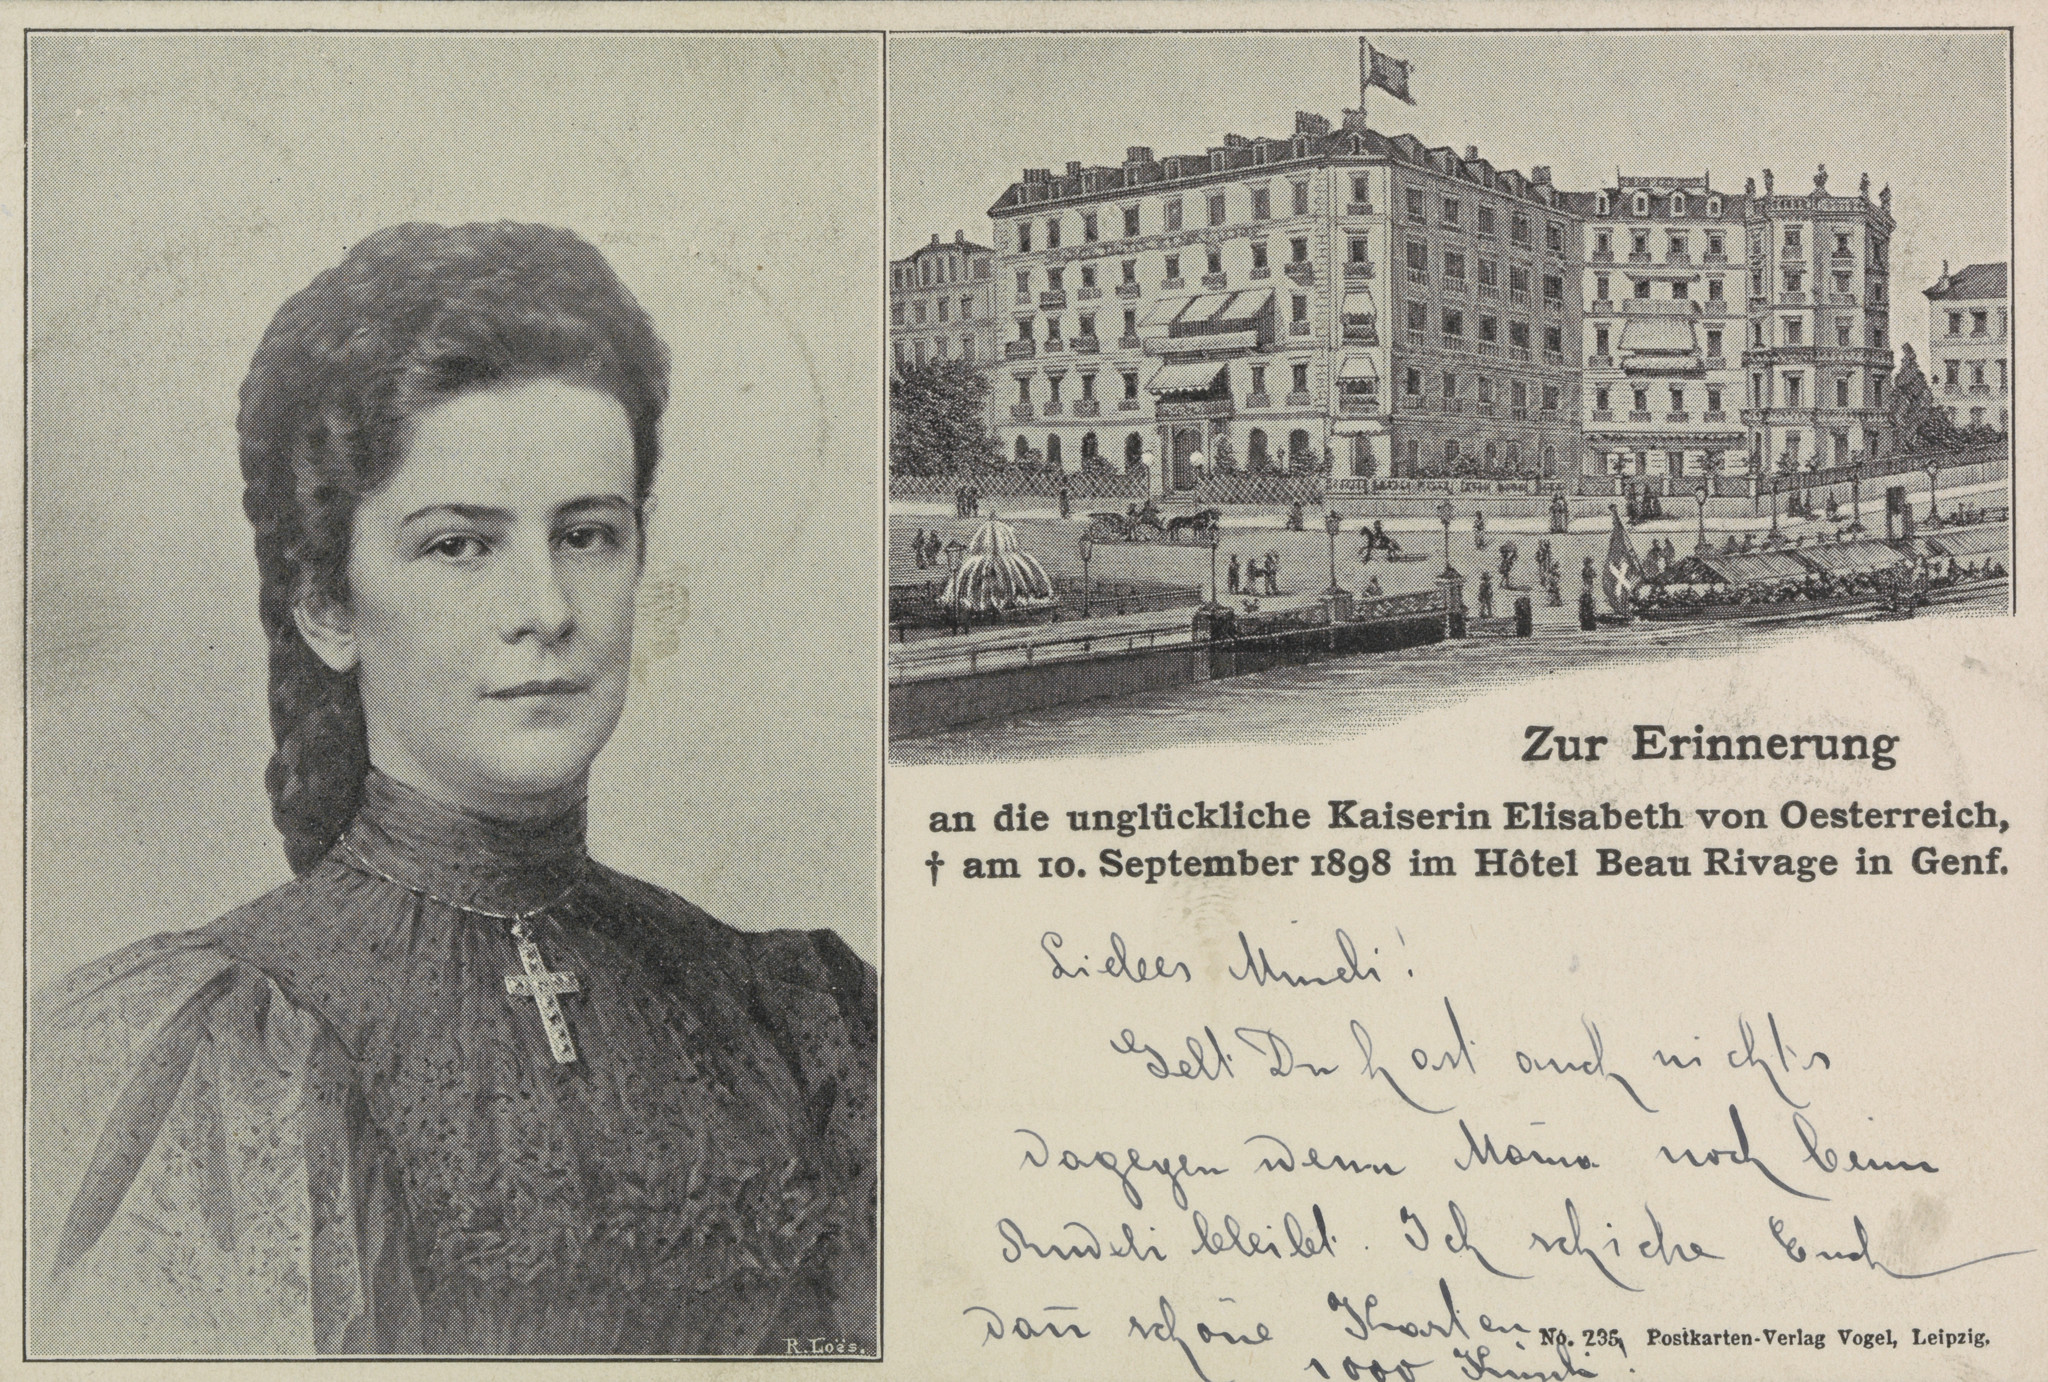 Zur Erinnerung
an die unglückliche Kaiserin Elisabeth von Oesterreich,
† am 10. September 1898 im Hôtel Beau Rivage in Genf.
Liebes Mundi!
Gelt Du hast auch nichts
dagegen wenn Mama noch beim
Rudeli bleibt. Ich schicke Euch
dann schöne Karten
1000
No. 235, Postkarten-Verlag Vogel, Leipzig.
R. Loës.